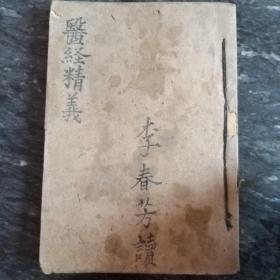 醫経精義
李春芳讀